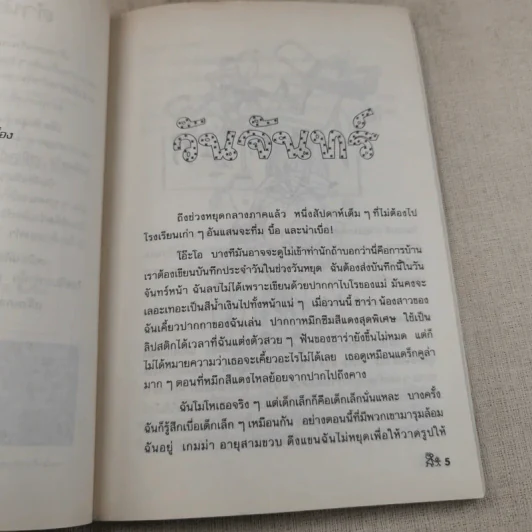 วันจันทร์
ถึงช่วงหยุดกลางภาคแล้ว หนึ่งสัปดาห์เต็ม ๆ ที่ไม่ต้องไป
โรงเรียนเก่า ๆ อันแสนจะทึ่ม บื้อ และน่าเบื่อ!
โอ๊ะโอ บางทีมันอาจจะดูไม่เข้าท่านักถ้าบอกว่านี่คือการบ้าน
เราต้องเขียนบันทึกประจำวันในช่วงวันหยุด ฉันต้องส่งบันทึกนี้ในวัน
จันทร์หน้า ฉันลบไม่ได้เพราะเขียนด้วยปากกาไบโรของแม่ มันคงจะ
เลอะเทอะเป็นสีน้ำเงินไปทั้งหน้าแน่ ๆ เมื่อวานนี้ ซาร่า น้องสาวของ
ฉันเคี้ยวปากกาของฉันเล่น ปากกาหมึกซึมสีแดงสุดพิเศษ ใช้เป็น
ลิปสติกได้เวลาที่ฉันแต่งตัวสวย ๆ ฟันของซาร่ายังขึ้นไม่หมด แต่ก็
ไม่ได้หมายความว่าเธอจะเคี้ยวอะไรไม่ได้เลย เธอดูเหมือนแดร็กคูล่า
มาก ๆ ตอนที่หมึกสีแดงไหลย้อยจากปากไปถึงคาง
ฉันไม่โทษเธอจริง ๆ แต่เด็กเล็กก็คือเด็กเล็กนั่นแหละ บางครั้ง
ฉันก็รู้สึกเบื่อเด็กเล็ก ๆ เหมือนกัน อย่างตอนนี้ที่มีพวกเขามารุมล้อม
ฉันอยู่ เกมม่า อายุสามขวบ ดึงแขนฉันไม่หยุดเพื่อให้วาดรูปให้
5